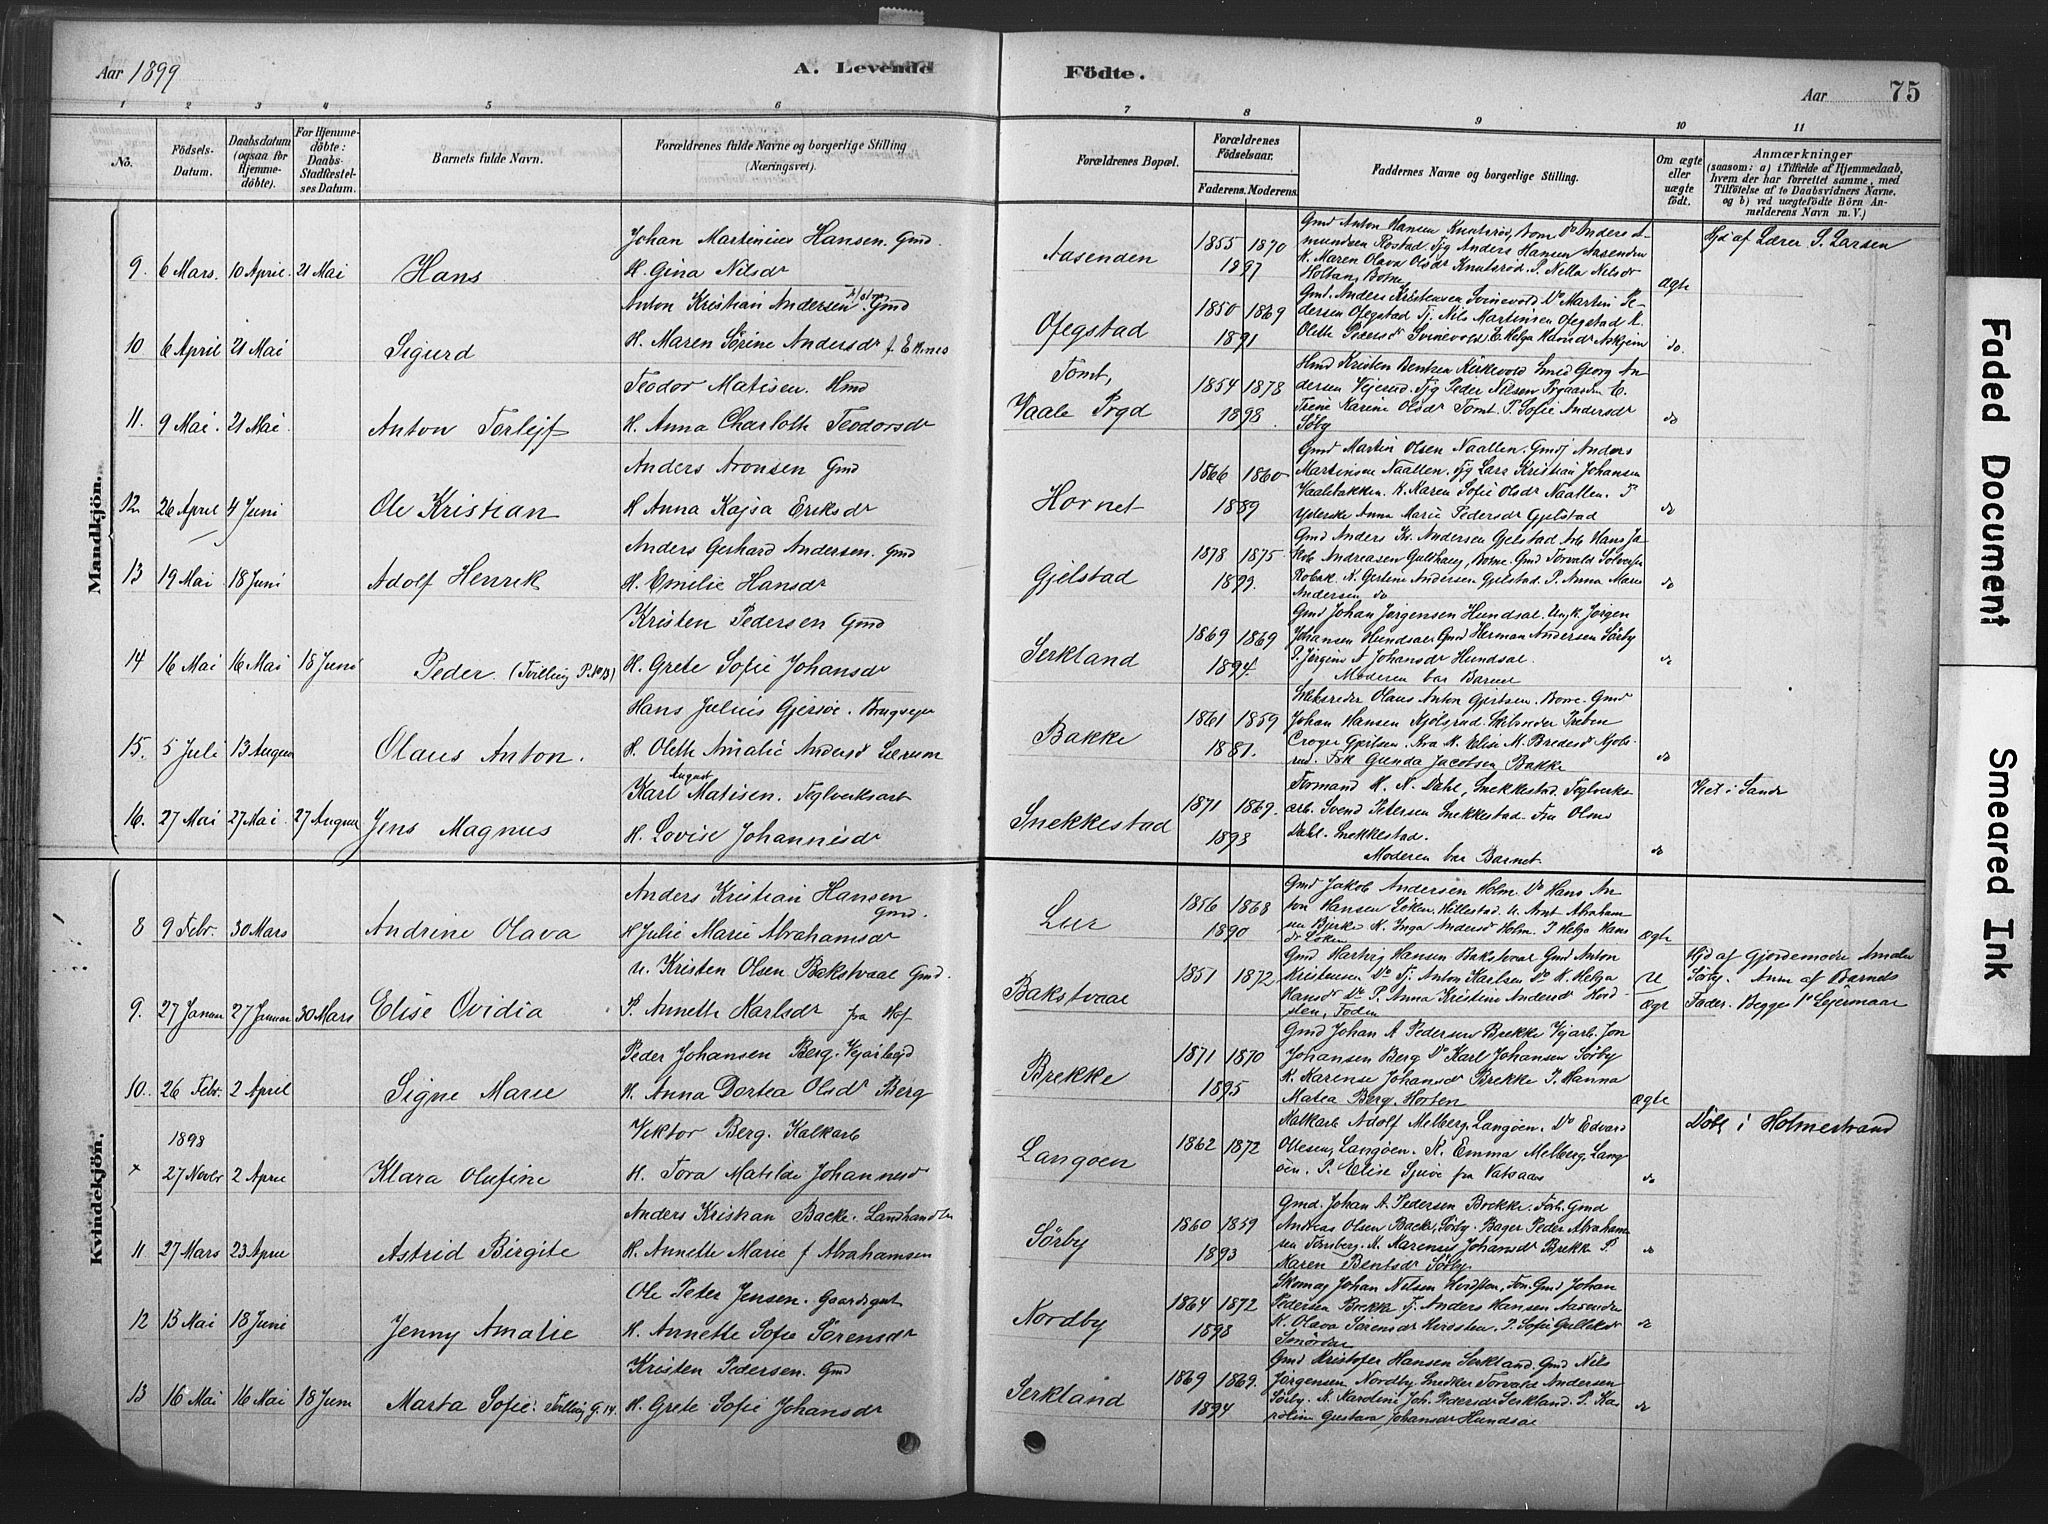 Aar 1899
A. Levende
Födte.
Aar
75
1 2 3 4 5 6 7 8 9 10 11
No.
Födsels-
Datum.
Daabsdatum
(ogsaa for
Hjemme-
döbte).
For Hjemme-
döbte:
Daabs-
Stadfæstel-
ses Datum.
Barnets fulde Navn.
Forældrenes fulde Navne og borgerlige Stilling
(Næringsvei).
Forældrenes Bopæl.
Forældrenes
Födselsaar.
Faderens. Moderens.
Faddernes Navne og borgerlige Stilling.
Om ægte
eller
uægte
födt.
Anmærkninger
(saasom: a) i Tilfælde af Hjemmedaab,
hvem der har forrettet samme, med
Tilföielse af to Daabsvidners Navne,
og b) ved uægtefödte Börn An-
melderens Navn m. V.)
Mandkjön.
9. 6 Mars. 10 April. 21 Mai
Hans
Johan Martinius Hansen. Gmd.
H. Gina Nilsdr
Aasenden
1855 1870
1897
Gmd Anton Hansen Knutsröd, Botne Do Anders A-
mundsen Rostad. Tjg Anders Hansen Aasenden
K. Maren Olava Olsdr Knutsröd. P. Nella Nilsdr
Holtan, Botne
ægte
Hjd af Lærer S. Larsen
10 6 April 21 Mai
Sigurd
Anton Kristian Andersen Gmd
H. Maren Sörine Andersdr f. Eknes
Ofegstad
1850 1869
1891
Gmd. Anders Kristensen Svinevold Do Martin Pe-
dersen Ofegstad Tj. Nils Martinsen Ofegstad K.
Oleth Pedersdr Svinevold E. Helga Askjem
do.
11. 9 Mai. 21 Mai.
Anton Torlejf
Teodor Matisen. Hmd
H. Anna Charloth Teodorsdr
Tomt,
Vaale Prgd
1854 1878
1898.
Hmd Kristen Bentzen Kirkevold Smed Georg An-
dersen Vejesrud. Tjg Peder Nilsen Bydaasen E.
Trine Karine Olsdr Tomt. P. Sofie Andersdr
Söby
do
12. 26 April 4 Juni
Ole Kristian
Anders Aronsen Gmd
H Anna Kajsa Eriksdr
Hornet
1866 1860
1889
Gmd Martin Olsen Naallen. Gmd Anders
Martinsen Naallen. Tjg Lars Kristian Johansen
Vaalebakken. K. Karen Sofie Olsdr Naallen. P
Anna Marie Pedersdr Gjelstad
do
13 19 Mai 18 Juni
Adolf Henrik
Anders Gerhard Andersen. Gmd
H. Emilie Hansdr
Gjelstad
1878 1875
1899.
Gmd Anders Kr. Andersen Gjelstad Arb Hans Ja-
kob Andreasen Guldhaug, Botne. Gmd Torvald
K. Gerline Andersen Gjelstad. P. Anna Marie
Andersen do
do
14 16 Mai 16 Mai 18 Juni
Peder. (Tvilling P. No 13)
Kristen Pedersen Gmd
H. Grete Sofie Johansdr
Serkland
1869 1869
1894.
Gmd Johan Jørgensen Hundsal. Un.k. Jørgen
Johansen Hundsal. Gmd Herman Andersen Sörby
P. Jørgine A Johansdr Hundsal.
Moderen bar Barnet
do
15. 5 Juli 13 August
Olaus Anton.
Hans Julius Gjersöe. Brugsejer
H. Oleth Amalie Andersd Lærum
Bakke
1861 1859
1881.
Skibsreder Olaus Anton Gjertsen. Botne. Gmd
Johan Hansen Kjölsrud. Preben
Gjertsen. K. Elise M. Bredesdr Kjöls-
rud. Frk Gunda Jacobsen Bakke
do
16. 27 Mai 27 Mai. 27 August
Jens Magnus
Karl August Matisen. Teglverksarb
H. Lovise Johannisdr
Snekkestad
1871 1869.
1893
Formand H. N. Dahl, Snekkestad. Teglverks-
arb. Svend Petersen Snekkestad. Fru Oline
Dahl. Snekkestad.
Moderen bar Barnet.
do
Vict i Sande
Kvindekjön.
8 9 Febr. 30 Mars
Andrine Olava
Anders Kristian Hansen
Gmd.
H Julie Marie Abrahamsdr
Lur
1856 1868
1890
Gmd Jakob Andersen Holm Do Hans An-
ton Hansen Löken, Hillestad. U. Arnt Abraham-
sen Bjerke K. Inga Andersdr Holm. P Helga Hans
dr Löken
ægte
9. 27 Januar 27 Januar 30 Mars
Elise Ovidia
U. Kristen Olsen Bakstvaal Gmd.
P. Annette Karlsdr fra Hof
Bakstvaal
1851 1872
Gmd Hartvig Hansen Bakstvaal Gmd Anton
Kristensen Do Tj. Anton Karlsen Do K. Helga
Hansdr Do P. Anna Kristine Andersdr Hord-
sten, Foden
U
ægt
Hjd af Gjordemodre Amalie
Sörby. Anm af Barnets
Fader. Begges 1ste Lejermaal
10. 26 Febr. 2 April
Signe Marie
Peder Johansen Berg. Vejarbejd
H. Anna Dortea Olsdr Berg
Brekke
1871 1870
1895
Gmd Johan A. Pedersen Brekke Vejarb. Jon
Johansen Berg Do Karl Johansen Sörby
K. Karense Johansdr Brekke P. Hanna
Matea Berg, Horten
ægte
1898
x 27 Novbr 2 April
Klara Olufine
Viktor Berg. Kalkarb
H. Tora Matilde Johannesdr
Langöen
1862 1872
Kalkarb Adolf Melberg, Langöen. Do Edvard
Olesen, Langöen. K. Emma Melberg, Lang-
öen. P. Elise Sjuve fra Vataaas
do
Döbt i Holmestrand
11. 27 Mars 23 April
Astrid Birgite
Anders Kristian Backe. Landhandler
H. Annette Marie f Abrahamsen
Sörby
1860 1859
1893
Gmd. Johan A. Pedersen Brekke. Forh. Gmd
Andreas Olsen Backe, Sörby. Bager Peder Abraham-
sen Tønsberg. K. Karense Johansdr Brekk P.
Karen Bentsdr Sörby
do
12 15 Mai 18 Juni
Jenny Amalie
Ole Peter Jensen. Gaardsgut
H. Annette Sofie Sörensdr
Nordby
1864 1872
1898
Skomag Johan Nilsen Hordsten, Gmd Johan
Pedersen Brekke Tj. Anders Hansen Aasenden
K. Olava Sörensdr Hordsten. P. Sofie Gulliksdr
Smördal
do
13 16 Mai 16 Mai 18 Juni
Marta Sofie. Tvilling G. 14.
Kristen Pedersen. Gmd
H. Grete Sofie Johansdr
Serkland
1869 1869.
1894
Gmd Kristofer Hansen Serkland. Gmd Nils
Jorgensen Nordby. Snedker Torvald Andersen
Sörby. K. Karoline Joh. Pedersdr Serkland. P. Ka-
roline Gustava Johansdr Hundsal
do
Faded Document
Smeared Ink